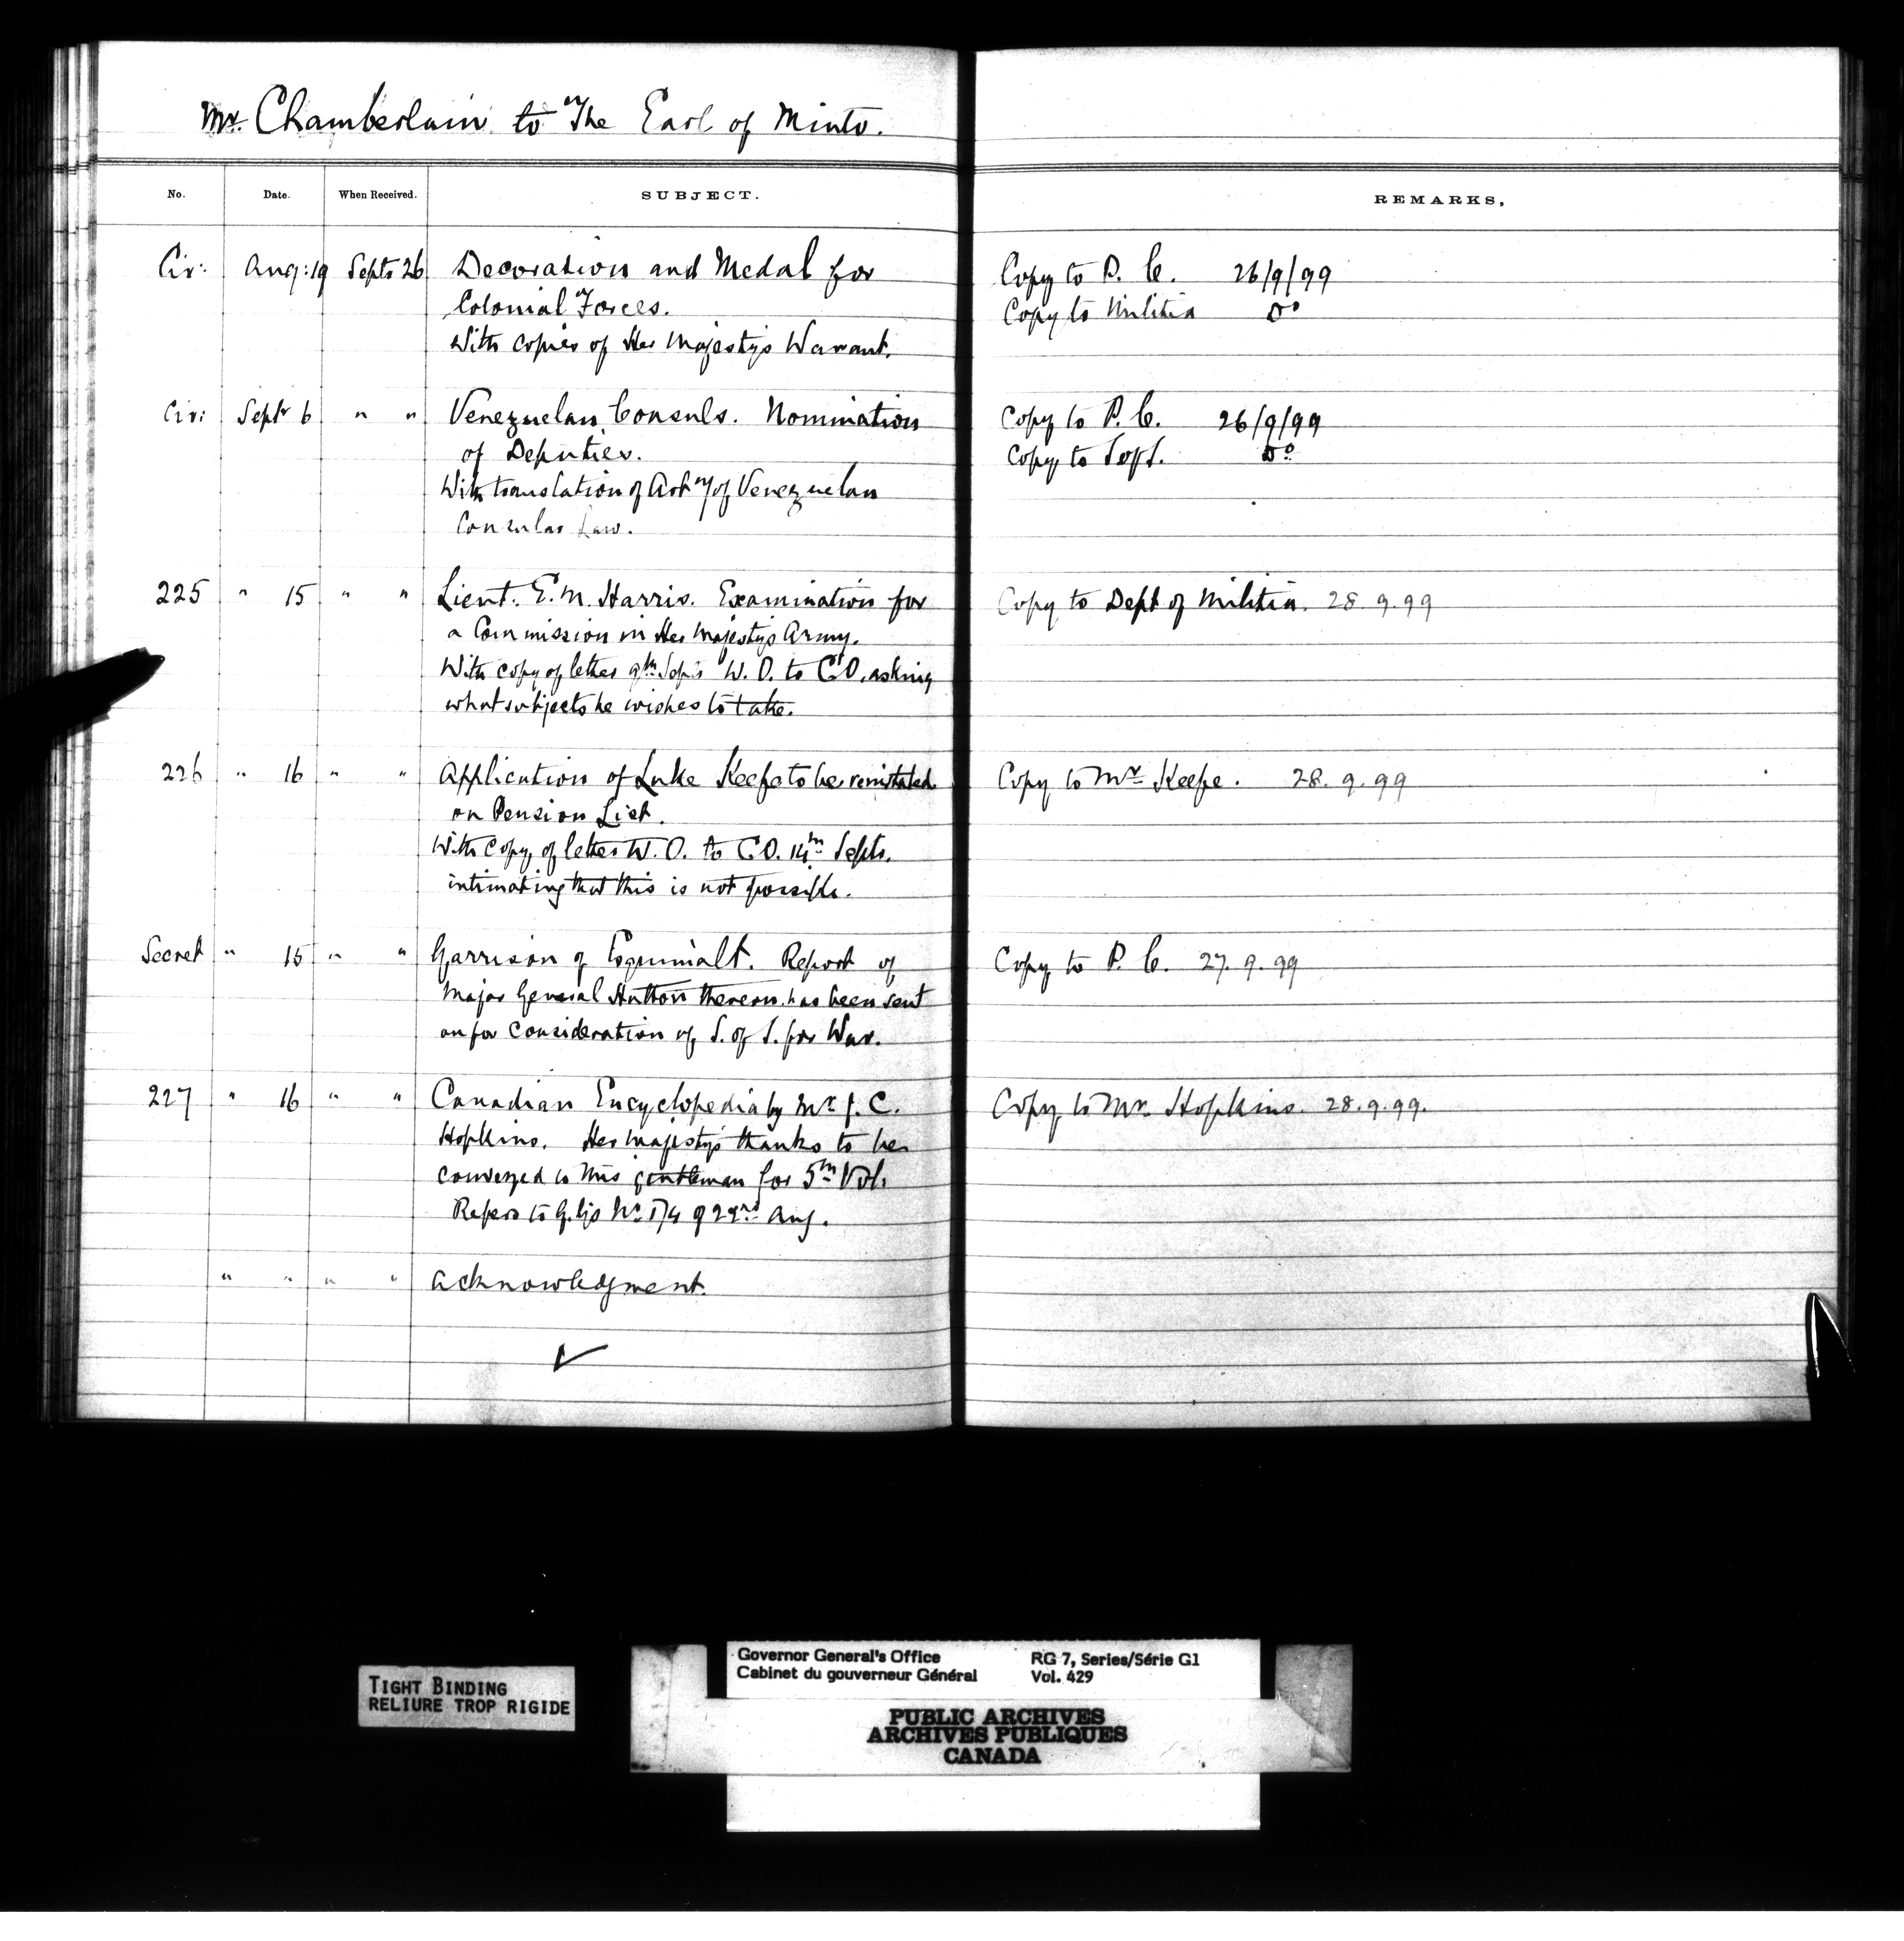 Mr. Chamberlain to The Earl of Minto.
No. Date. When Received. SUBJECT. REMARKS.
Cir: Aug: 19 Septr 26 Decoration and Medal for Copy to P. C. 26/9/99
Colonial Forces. Copy to Militia Do
With copies of Her Majesty's Warrant.
Cir: Septr 6 " " Venezuelan Consuls. Nomination Copy to P. C. 26/9/99
of Deputies. Copy to Do
With translation of Art of Venezuelan
Consular Law.
225 " 15 " " Lieut. E. M. Harris. Examination for Copy to Dept of Militia. 28.9.99
a Commission in Her Majesty's Army.
With copy of letter 9th Septr W. O. to C.O. asking
what subjects he wishes to take.
226 " 16 " " Application of Luke Keefe to be reinstated Copy to Mr Keefe. 28.9.99
on Pension List.
With copy of letter W. O. to C.O. 14th Septr.
intimating that this is not possible.
Secret " 15 " " Garrison of Esquimalt. Report of Copy to P. C. 27.9.99
Major General Hutton thereon has been sent
on for consideration of S. of S. for War.
227 " 16 " " Canadian Encyclopedia by Mr J. C. Copy to Mr. Hopkins. 28.9.99.
Hopkins. Her Majesty's thanks to be
conveyed to this gentleman for 5th Vol.
Refers to No 174 of 22nd Aug.
" " " " Acknowledgment.
Governor General's Office RG 7, Series/Série G1
Cabinet du gouverneur Général Vol. 429
TIGHT BINDING
RELIURE TROP RIGIDE
PUBLIC ARCHIVES
ARCHIVES PUBLIQUES
CANADA